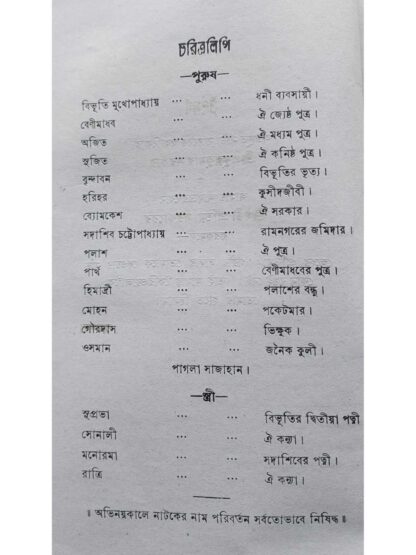 চরিত্রলিপি
—পুরুষ—
বিভূতি মুখোপাধ্যায় ... ... ধনী ব্যবসায়ী।
বেণীমাধব ... ... ঐ জ্যেষ্ঠ পুত্র।
অজিত ... ... ঐ মধ্যম পুত্র।
সুজিত ... ... ঐ কনিষ্ঠ পুত্র।
বৃন্দাবন ... ... বিভূতির ভৃত্য।
হরিহর ... ... কুসীদজীবী।
ব্যোমকেশ ... ... ঐ সরকার।
সদাশিব চট্টোপাধ্যায় ... ... রামনগরের জমিদার।
পলাশ ... ... ঐ পুত্র।
পার্থ ... ... বেণীমাধবের পুত্র।
হিমাদ্রী ... ... পলাশের বন্ধু।
মোহন ... ... পকেটমার।
গৌরদাস ... ... ভিক্ষুক।
ওসমান ... ... জনৈক কুলী।
পাগলা সাজাহান।
—স্ত্রী—
সুপ্রভা ... ... বিভূতির দ্বিতীয়া পত্নী
সোনালী ... ... ঐ কন্যা।
মনোরমা ... ... সদাশিবের পত্নী।
রাত্রি ... ... ঐ কন্যা।
॥ অভিনয়কালে নাটকের নাম পরিবর্তন সর্বতোভাবে নিষিদ্ধ ॥